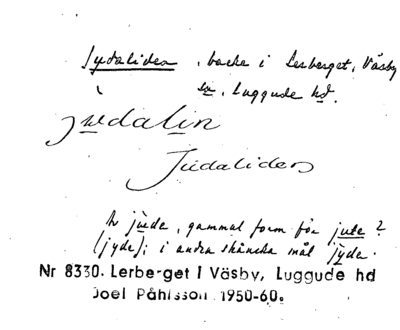 Jydaliden, backe i Lerberget, Väsby
sn, Luggude hd.
judalin
Judaliden
Av jude, gammal form för jute?
(jyde); i andra skånska mål jyde.
Nr 8330. Lerberget i Väsby, Luggude hd
Joel Påhlsson 1950-60.